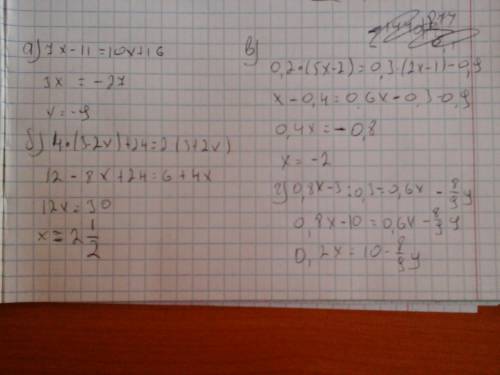 а) 7x - 11 = 10x + 16
3x = -27
x = -9
б) 4·(3-2x)+24=2(3+2x)
12 - 8x + 24 = 6 + 4x
12x = 30
x = 2 1/2
в)
0,2·(5x-2)=0,3·(2x-1)-0,9
x-0,4=0,6x-0,3-0,9
0,4x=-0,8
x = -2
г) 0,8x-3:0,3=0,6x - 8/9 y
0,8x-10=0,6x-8/9 y
0,2x=10-8/9 y